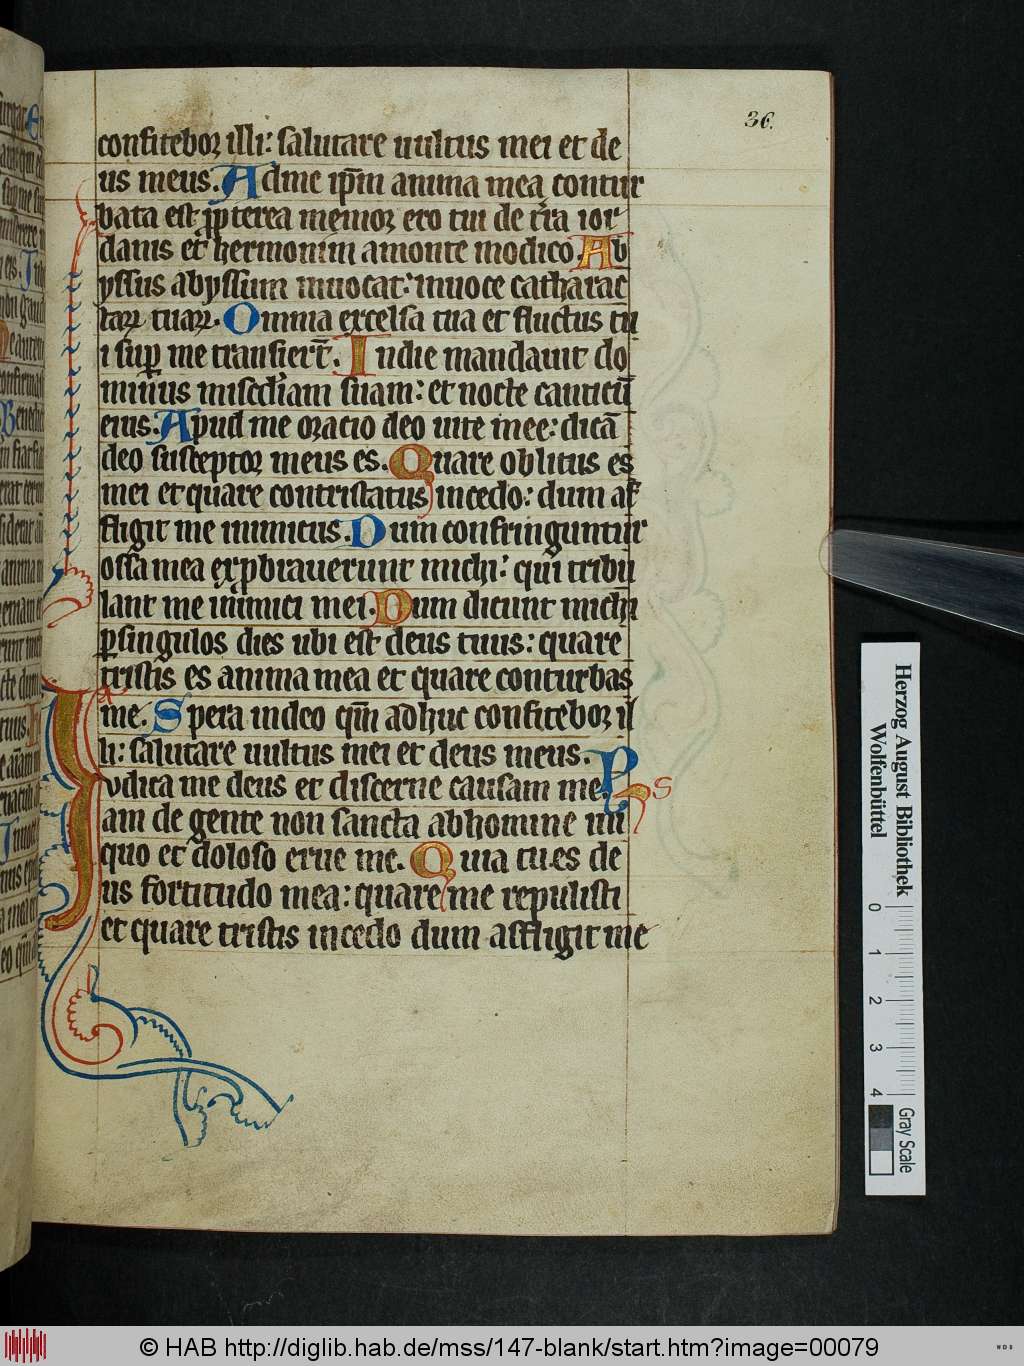 36.
confitebor illi: salutare uultus mei et de
us meus. Adme ip̄m anima mea contur
bata est ꝓpterea memor ero tui de t̄ra ior
danis et hermoniim amonte modico. Ab
yssus abyssum inuocat: inuoce catharac
tarꝝ tuarꝝ. Omnia excelsa tua et fluctus tu
i suꝑ me transierūt. Indie mandauit do
minus mīscd̓iam suam: et nocte canticū
eius. Apud me oracio deo uite mee: dicā
deo susceptor meus es. Quare oblitus es
mei et quare contristatus incedo: dum af
fligit me inimicus. Dum confringuntur
ossa mea exꝓbrauerunt michi: qui tribu
lant me inimici mei. Dum dicunt michi
ꝑsingulos dies ubi est deus tuus: quare
tristis es anima mea et quare conturbas
me. Spera indeo qm̄ adhuc confitebor il
li: salutare uultus mei et deus meus. Ps
Iudica me deus et discerne causam me
am de gente non sancta abhomine ini
quo et doloso erue me. Quia tu es de
us fortitudo mea: quare me repulisti
et quare tristis incedo dum affligit me
Herzog August Bibliothek
Wolfenbüttel
0 1 2 3 4
Gray Scale
© HAB http://diglib.hab.de/mss/147-blank/start.htm?image=00079